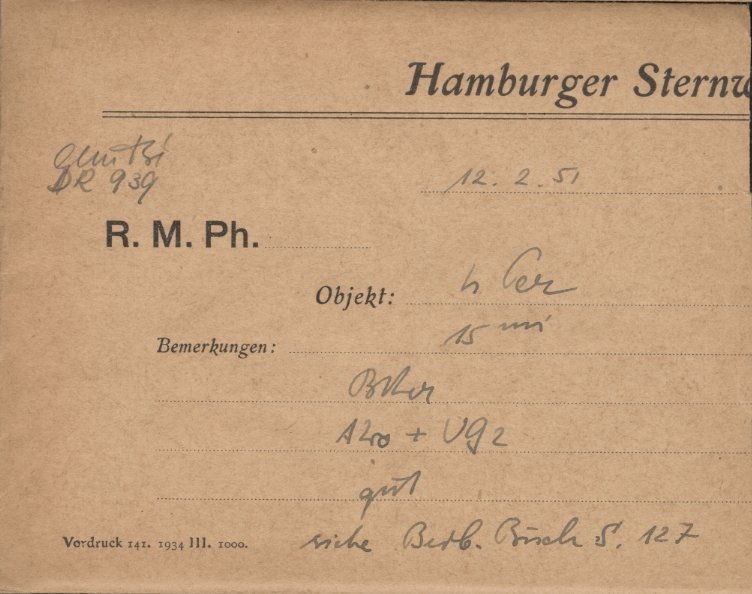 Hamburger Sternw
DR 939
12. 2. 51
R. M. Ph.
Objekt: h Per
Bemerkungen: 15 min
+ UG2
gut
siehe Beob. Buch S. 127
Vordruck 141. 1934 III. 1000.